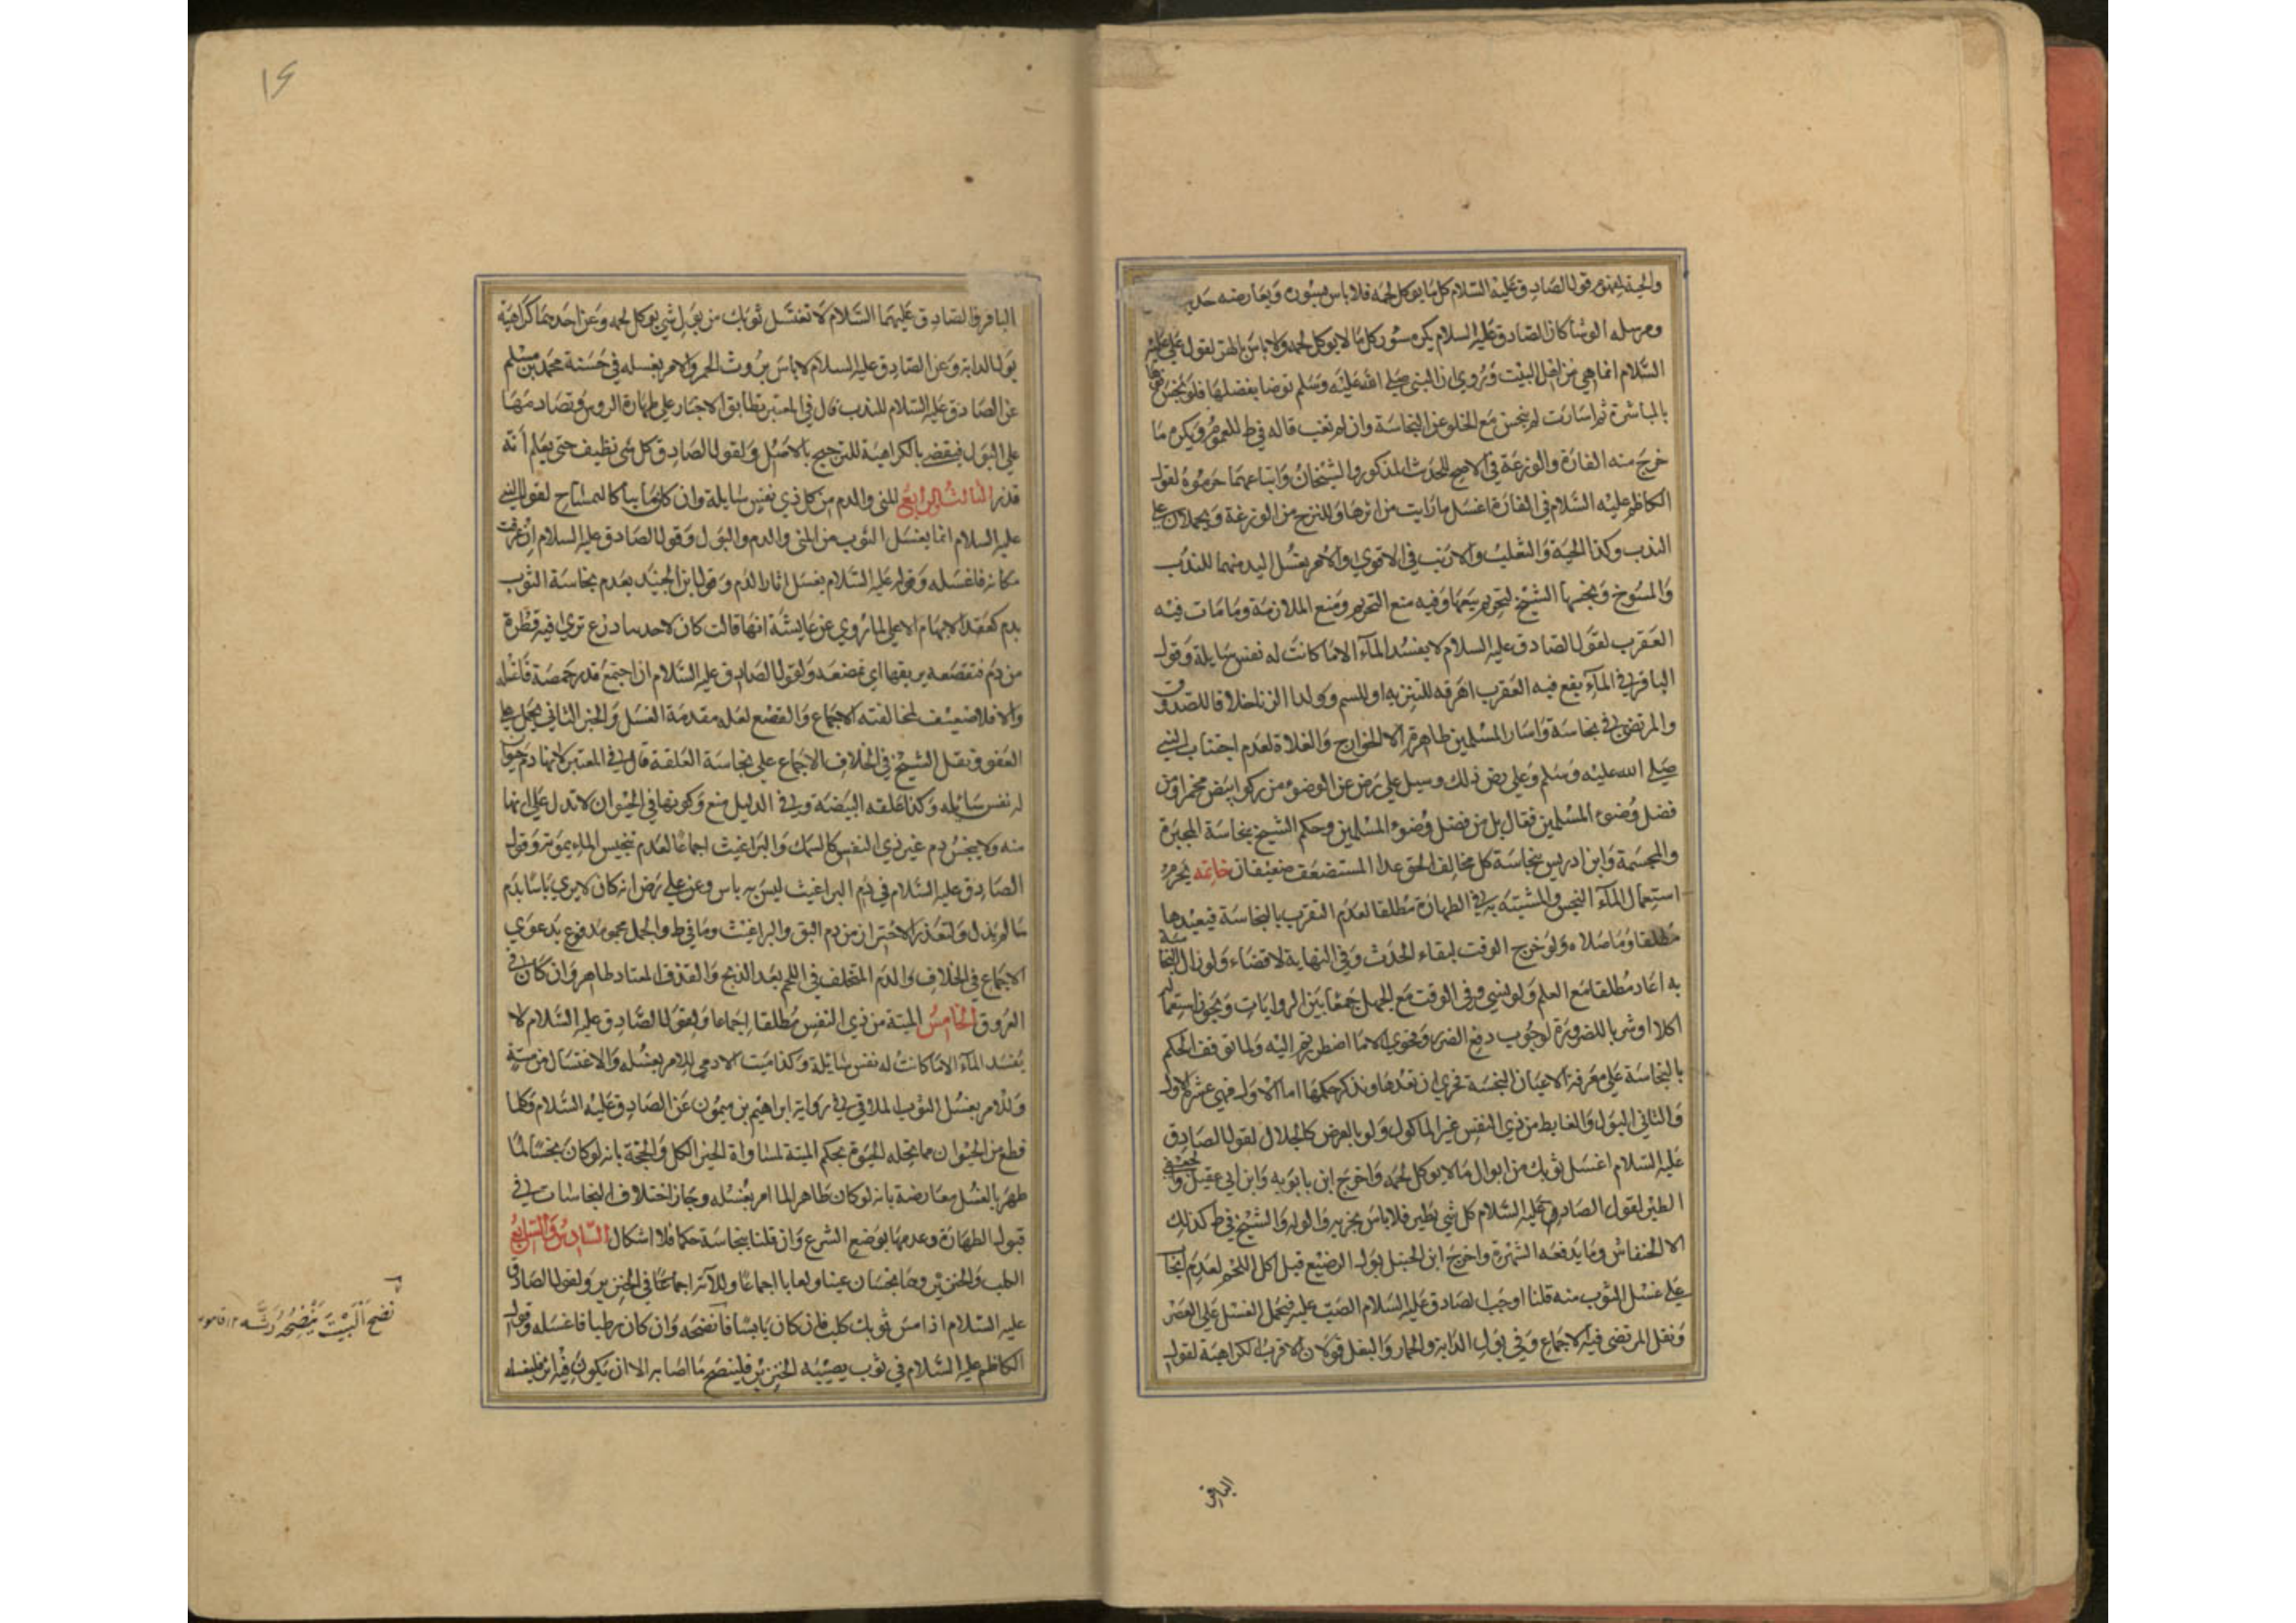 والحية لمفهوم قول الصادق عليه السلام كل ما يوكل لحمه فلا باس بسوره ويعارضه
ومرسله الوشا كان الصادق عليه السلام يكره سوركل ما لا يوكل لحمه ولا باس بالهر لقول علي عليه
السلام انما هي من اهل البيت وروي ان النبي صلى الله عليه وسلم توضا بفضلها فلو نجس فوها
بالمباشرة ثم اسارت لم ينجس مع الخلو عن النجاسة وان لم تغب قاله في ط للعموم ويكره ما
خرج منه الفارة والوزغة في الاصح للحدث المذكور والشيخان واتباعهما حرموه لقول
الكاظم عليه السلام في الفارة اغسل ما رايت من اثرها وللنزح من الوزغة ويحملان على
الندب وكذا الحية والثعلب والارنب في الاقوي والامر بغسل اليد منهما للندب
والمسوخ ونجسها الشيخ لتحريم بيعها وفيه منع التحريم ومنع الملازمة وما مات فيه
العقرب لقول الصادق عليه السلام لا يفسد الماء الا ما كانت له نفس سايلة وقول
الباقر في الماء يقع فيه العقرب اهرقه للتنزيه او للسم وكولد الزنا خلافا للصدوق
والمرتضى في نجاسة واسار المسلمين طاهرة الا الخوارج والغلاة لعدم اجتناب النبي
صلى الله عليه وسلم وعلي رض ذلك وسيل علي رض عن الوضوء من ركو ابيض مخمر او من
فضل وضوء المسلمين فقال بل من فضل وضوء المسلمين وحكم الشيخ بنجاسة المجبرة
والمجسمة وابن ادريس بنجاسة كل مخالف الحق عدا المستضعف ضعيفان خاتمه يحرم
استعمال الماء النجس والمشتبه به في الطهارة مطلقا لعدم التقرب بالنجاسة فيعيدها
مطلقا وما صلاه ولو خرج الوقت لبقاء الحدث وفي النهاية لا قضاء ولو زال النجاسة
به اعاد مطلقا مع العلم ولو نسي وفي الوقت مع الجهل جمعا بين الروايات ويجوز استعماله
اكلا او شربا للضرورة لوجوب دفع الضرر وفحوى الا ما اضطررتم اليه ولما توقف الحكم
بالنجاسة على معرفة الاعيان النجسة فحري ان نعدها ونذكر حكمها اما الاول فهي عشرة الاول
والثاني البول والغايط من ذي النفس غير الماكول ولو بالعرض كالجلال لقول الصادق
عليه السلام اغسل ثوبك من ابوال ما لا يوكل لحمه واخرج ابن بابويه وابن ابي عقيل والجعفي
الطير لقول الصادق عليه السلام كل شي يطير فلا باس بخريه والوله والشيخ في ط كذلك
الا الخفاش وما يدفعه الشهرة واخرج ابن الجنيل بول الرضيع قبل اكل اللحم لعدم ايجا
على غسل الثوب منه قلنا اوجب الصادق عليه السلام الصب عليه فيحمل الغسل على العصر
ونقل المرتضى فيه الاجماع وفي بول الدابة والحمار والبغل قولان الاقرب الكراهية لقول
الباقر
١٦
الباقر والصادق عليهما السلام لا تغتسل ثوبك من بول شي يوكل لحمه وعن احدهما كراهية
بول الدابة وعن الصادق عليه السلام لا باس بروث الحمر والامر بغسله في حسنة محمد بن مسلم
عن الصادق عليه السلام للندب قال في المعتبر تطابق الاخبار على طهارة الروث وتصادمها
على البول فيقضى بالكراهية للترجيح بالاصل ولقول الصادق كل شي نظيف حتى يعلم انه
قذر الثالث والرابع المني والدم من كل ذي نفس سايلة وان كان مايا كالتمساح لقول النبي
عليه السلام انما يغسل الثوب من المني والدم والبول وقول الصادق عليه السلام ان عرفت
مكانه فاغسله وقوله عليه السلام يغسل اثار الدم وقول ابن الجنيد بعدم نجاسة الثوب
بدم كعقد الابهام الاعلى لما روي عن عايشة انها قالت كان لاحدينا درع ترى فيه قطرة
من دم فتقصعه بريقها اي تمضغه ولقول الصادق عليه السلام ان اجتمع قدر حمصة فاغسله
والا فلا ضعيف لمخالفته الاجماع والقصع لعله مقدمة الغسل والخبر الثاني يحمل على
العفو ونقل الشيخ في الخلاف الاجماع على نجاسة العلقة قال في المعتبر لانها دم حيوان
له نفس سائله وكذا علقه البيضة وفي الدليل منع وكونها في الحيوان لا تدل على انها
منه ولا ينجس دم غير ذي النفس كالسمك والبراغيث اجماعا لعدم تنجيس الماء بموته وقول
الصادق عليه السلام في دم البراغيث ليس به باس وعن علي رض انه كان لا يري باسا بدم
ما لم يذك ولتعذر الاحتراز من دم البق والبراغيث وما في ط والجمل مدفوع بدعوي
الاجماع في الخلاف والدم المتخلف في اللحم بعد الذبح والقذف المعتاد طاهر وان كان في
العروق الخامس الميتة من ذي النفس مطلقا اجماعا ولقول الصادق عليه السلام لا
يفسد الماء الا ما كانت له نفس سايلة وكذا ميت الادمي للامر بغسله والاغتسال من مسه
وللامر بغسل الثوب الملاقي في رواية ابراهيم بن ميمون عن الصادق عليه السلام وكلما
قطع من الحيوان مما يحله الحيوة بحكم الميتة لمساواة الجزء الكل والحجة بانه لو كان نجسا لما
طهر بالغسل معارضة بانه لو كان طاهرا لما امر بغسله وجاز اختلاف النجاسات في
قبول الطهارة وعدمها بوضع الشرع وان قلنا بنجاسة حكما فلا اشكال السادس والسابع
الكلب والخنزير وهما نجسان عينا ولعابا اجماعا وللآية اجماعا في الخنزير ولقول الصادق
عليه السلام اذا مس ثوبك كلب فان كان يابسا فانضحه وان كان رطبا فاغسله وقول
الكاظم عليه السلام في ثوب يصيبه الخنزير فلينضح ما اصابه الا ان يكون فيه اثر فليغسله
نضح البيت ينضحه رشه ١٢ قاموس